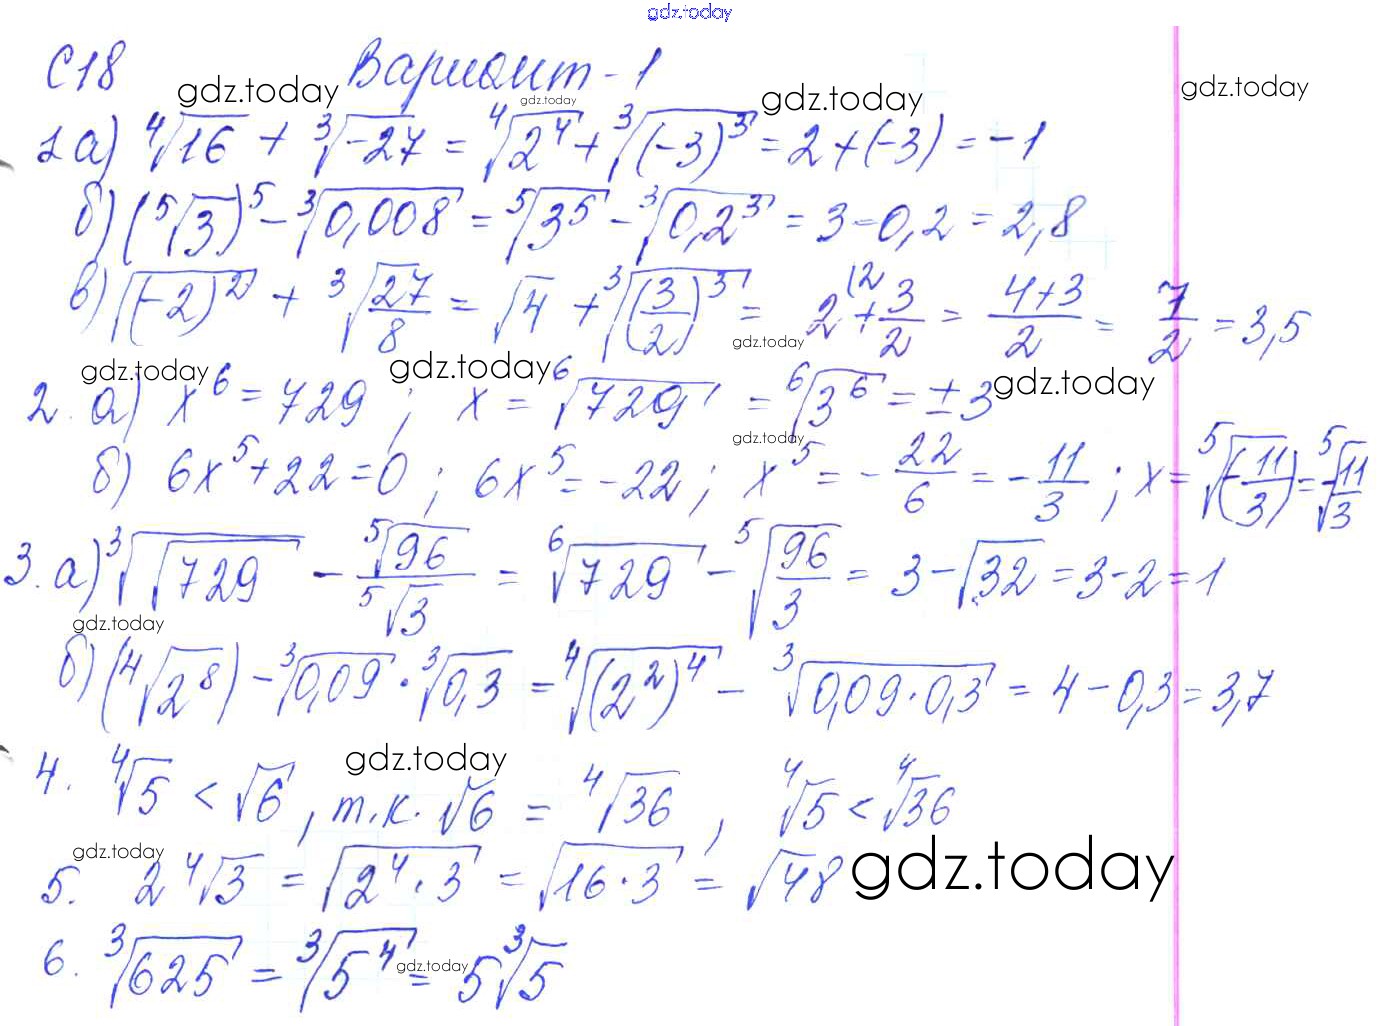 gdz.today
С18 Вариант-1
gdz.today gdz.today gdz.today gdz.today
1 а) ⁴√16 + ³√-27 = ⁴√2⁴ + ³√(-3)³ = 2 + (-3) = -1
б) (⁵√3)⁵ - ³√0,008 = ⁵√3⁵ - ³√0,2³ = 3 - 0,2 = 2,8
в) √(-2)² + ³√27/8 = √4 + ³√(3/2)³ = 2⁽² + 3/2 = 4+3/2 = 7/2 = 3,5
gdz.today gdz.today gdz.today gdz.today
2. а) x⁶ = 729 ; x = ⁶√729 = ⁶√3⁶ = ±3
gdz.today
б) 6x⁵ + 22 = 0 ; 6x⁵ = -22 ; x⁵ = -22/6 = -11/3 ; x = ⁵√(-11/3) = ⁵√-11/3
3. а) ³√√729 - ⁵√96/⁵√3 = ⁶√729 - ⁵√96/3 = 3 - √32 = 3 - 2 = 1
gdz.today
б) (⁴√2⁸) - ³√0,09 · ³√0,3 = ⁴√(2²)⁴ - ³√0,09·0,3 = 4 - 0,3 = 3,7
gdz.today
4. ⁴√5 < √6 , т.к. √6 = ⁴√36 , ⁴√5 < ⁴√36
gdz.today gdz.today
5. 2 ⁴√3 = √2⁴·3 = √16·3 = √48
6. ³√625 = ³√5⁴ = 5 ³√5
gdz.today